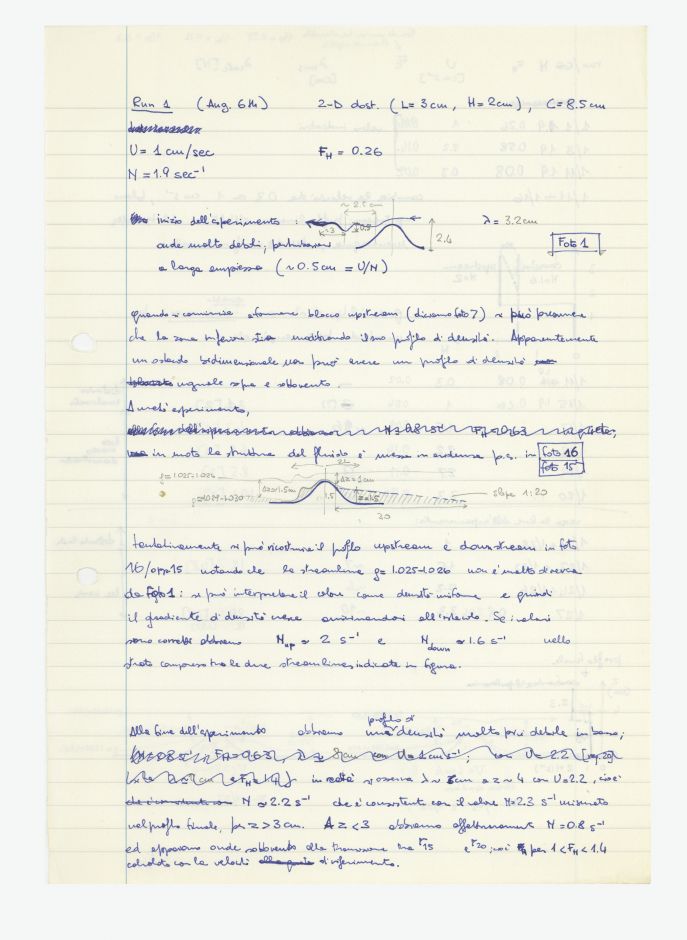 Run 1 (Aug. 6th) 2-D dost. (L= 3cm, H= 2cm), C= 8.5cm
U= 1 cm/sec F_H = 0.26
N = 1.9 sec⁻¹
~ 2.5 cm
inizio dell'esperimento : λ = 3.2cm
2.4
Foto 1
onde molto deboli, perturbazione
a larga ampiezza (~0.5cm = U/N)
quando si comincia a formare blocco upstream (diciamo foto 7) si può presumere
che la zona inferiore stia modificando il suo profilo di densità. Apparentemente
un ostacolo bidimensionale non può avere un profilo di densità
uguale sopra e sottovento.
A metà esperimento,
in moto la struttura del fluido è messa in evidenza p.s. in foto 16
foto 15
ρ=1.025-1.026 Δz=1cm
ρ=1.029-1.030 Δz=1.5cm 1.5 slope 1:20
30
tentativamente si può ricostruire il profilo upstream e downstream in foto
16/opp 15 notando che la streamline ρ= 1.025-1.026 non è molto diversa
da foto 1: si può interpretare il colore come densità uniforme e quindi
il gradiente di densità cresce avvicinandosi all'ostacolo. Se i valori
sono corretti abbiamo N_up ≃ 2 s⁻¹ e N_down ≃ 1.6 s⁻¹ nello
strato compreso tra le due streamlines indicate in figura.
Alla fine dell'esperimento abbiamo profilo di densità molto più debole in basso;
in realtà si osserva λ~ cm a z ~ 4 con U=2.2, cioè
N ≃ 2.2 s⁻¹ che è consistente con il valore N=2.3 s⁻¹ misurato
nel profilo finale, per z > 3 cm. A z < 3 abbiamo effettivamente N = 0.8 s⁻¹
ed appaiono onde sottovento alla transizione tra F15 e F20, cioè per 1 < F_H < 1.4
calcolato con la velocità di riferimento.